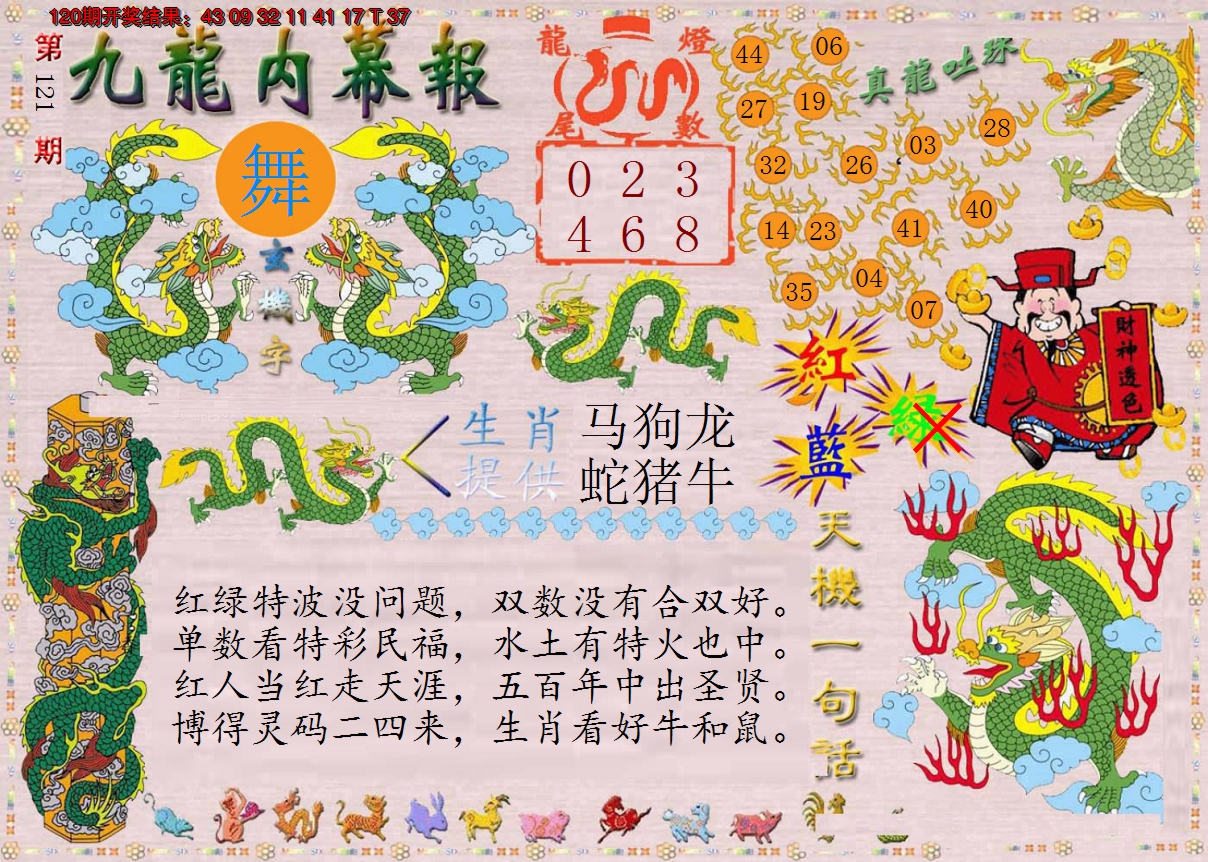 120期开奖结果：43 09 32 11 41 17 T 37
第121期
九龍内幕報
舞
玄機字
龍燈尾數
0 2 3
4 6 8
真龍吐珠
44 06
27 19
32 26 03 28
14 23 41 40
35 04 07
紅
綠
藍
財神透色
生肖提供
马狗龙
蛇猪牛
天機一句话
红绿特波没问题，双数没有合双好。
单数看特彩民福，水土有特火也中。
红人当红走天涯，五百年中出圣贤。
博得灵码二四来，生肖看好牛和鼠。